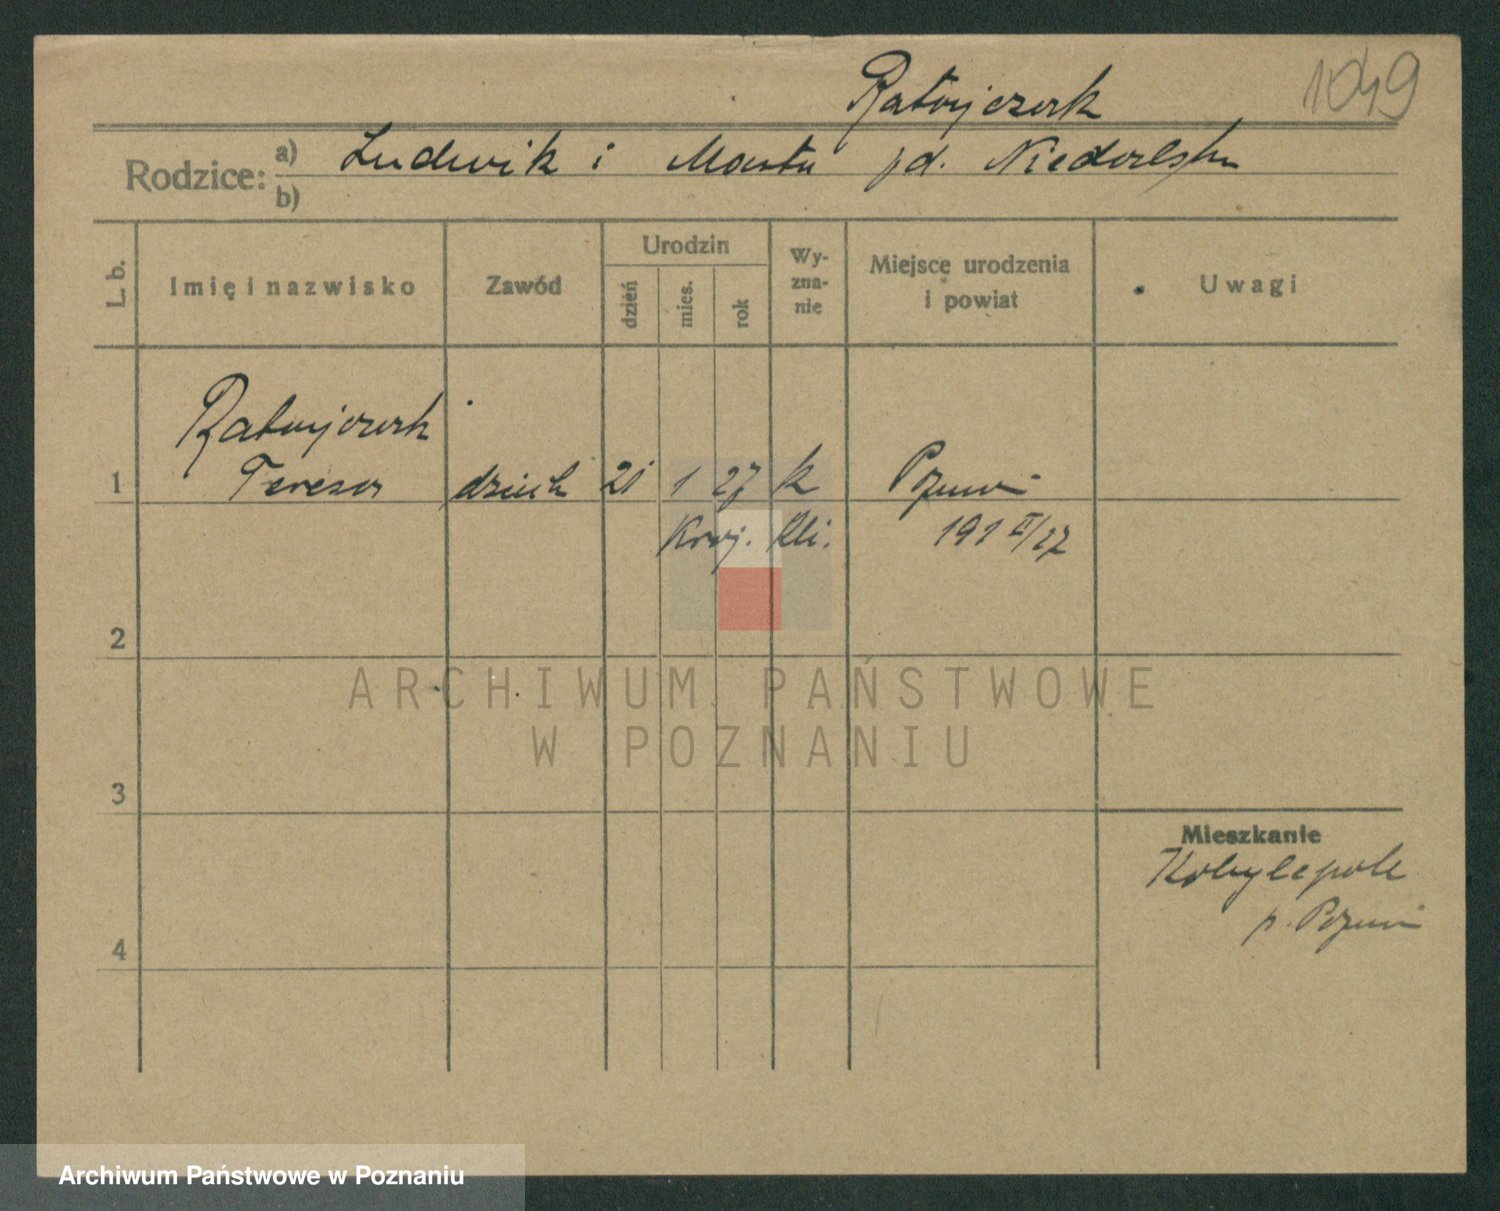 1049
Ratajczak
Rodzice: a) Ludwik i Marta pd.
b)
L. b.
Imię i nazwisko
Zawód
Urodzin
dzień
mies.
rok
Wy-
zna-
nie
Miejsce urodzenia
i powiat
Uwagi
Ratajczak
1 Teresa dzieck 21 1 27 k Poznań
191 II/27
2
3
4
Mieszkanie
Kobylepole
p. Poznań
ARCHIWUM PAŃSTWOWE
W POZNANIU
Archiwum Państwowe w Poznaniu